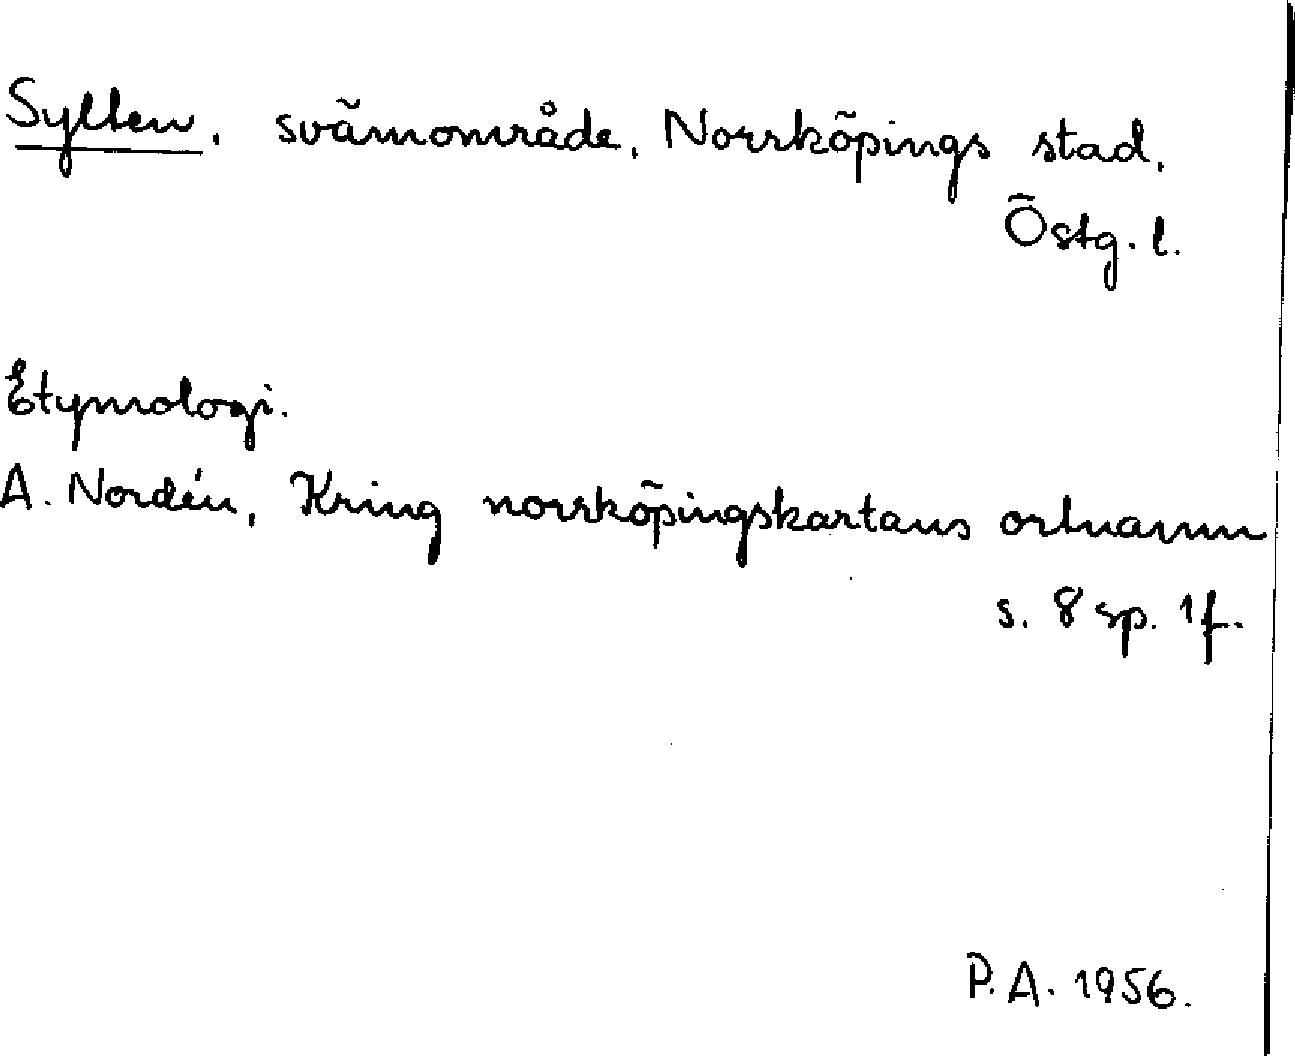 Sylten, svämområde, Norrköpings stad,
Östg. l.
Etymologi.
A. Nordén, Kring norrköpingskartans ortnamn
s. 8 sp. 1 f.
P. A. 1956.